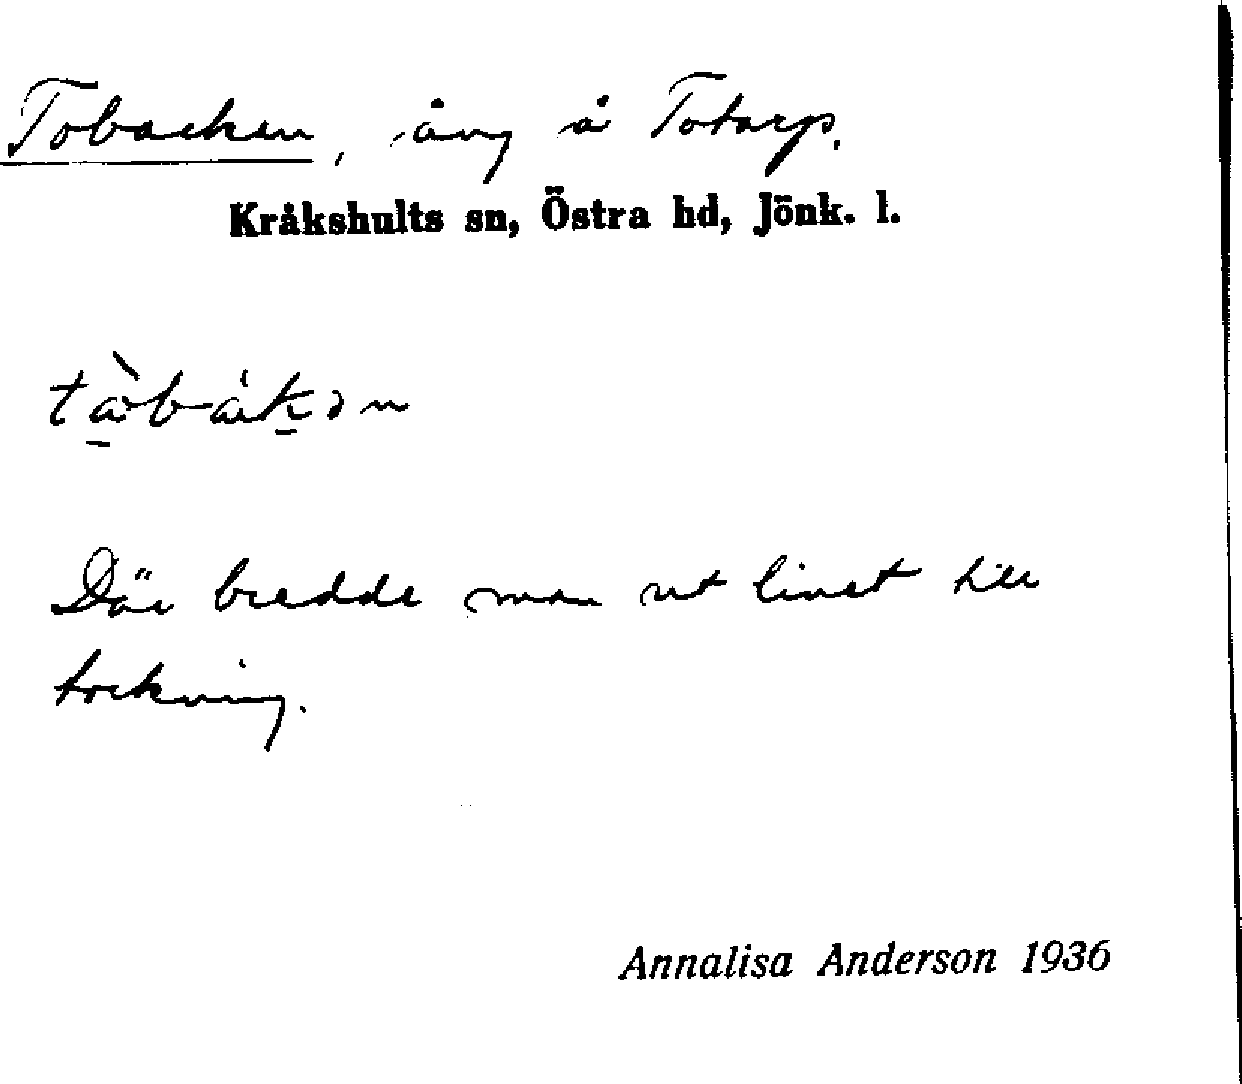 Tobacken, äng å Totarp.
Kråkshults sn, Östra hd, Jönk. l.
Där bredde man ut linet till
torkning.
Annalisa Anderson 1936